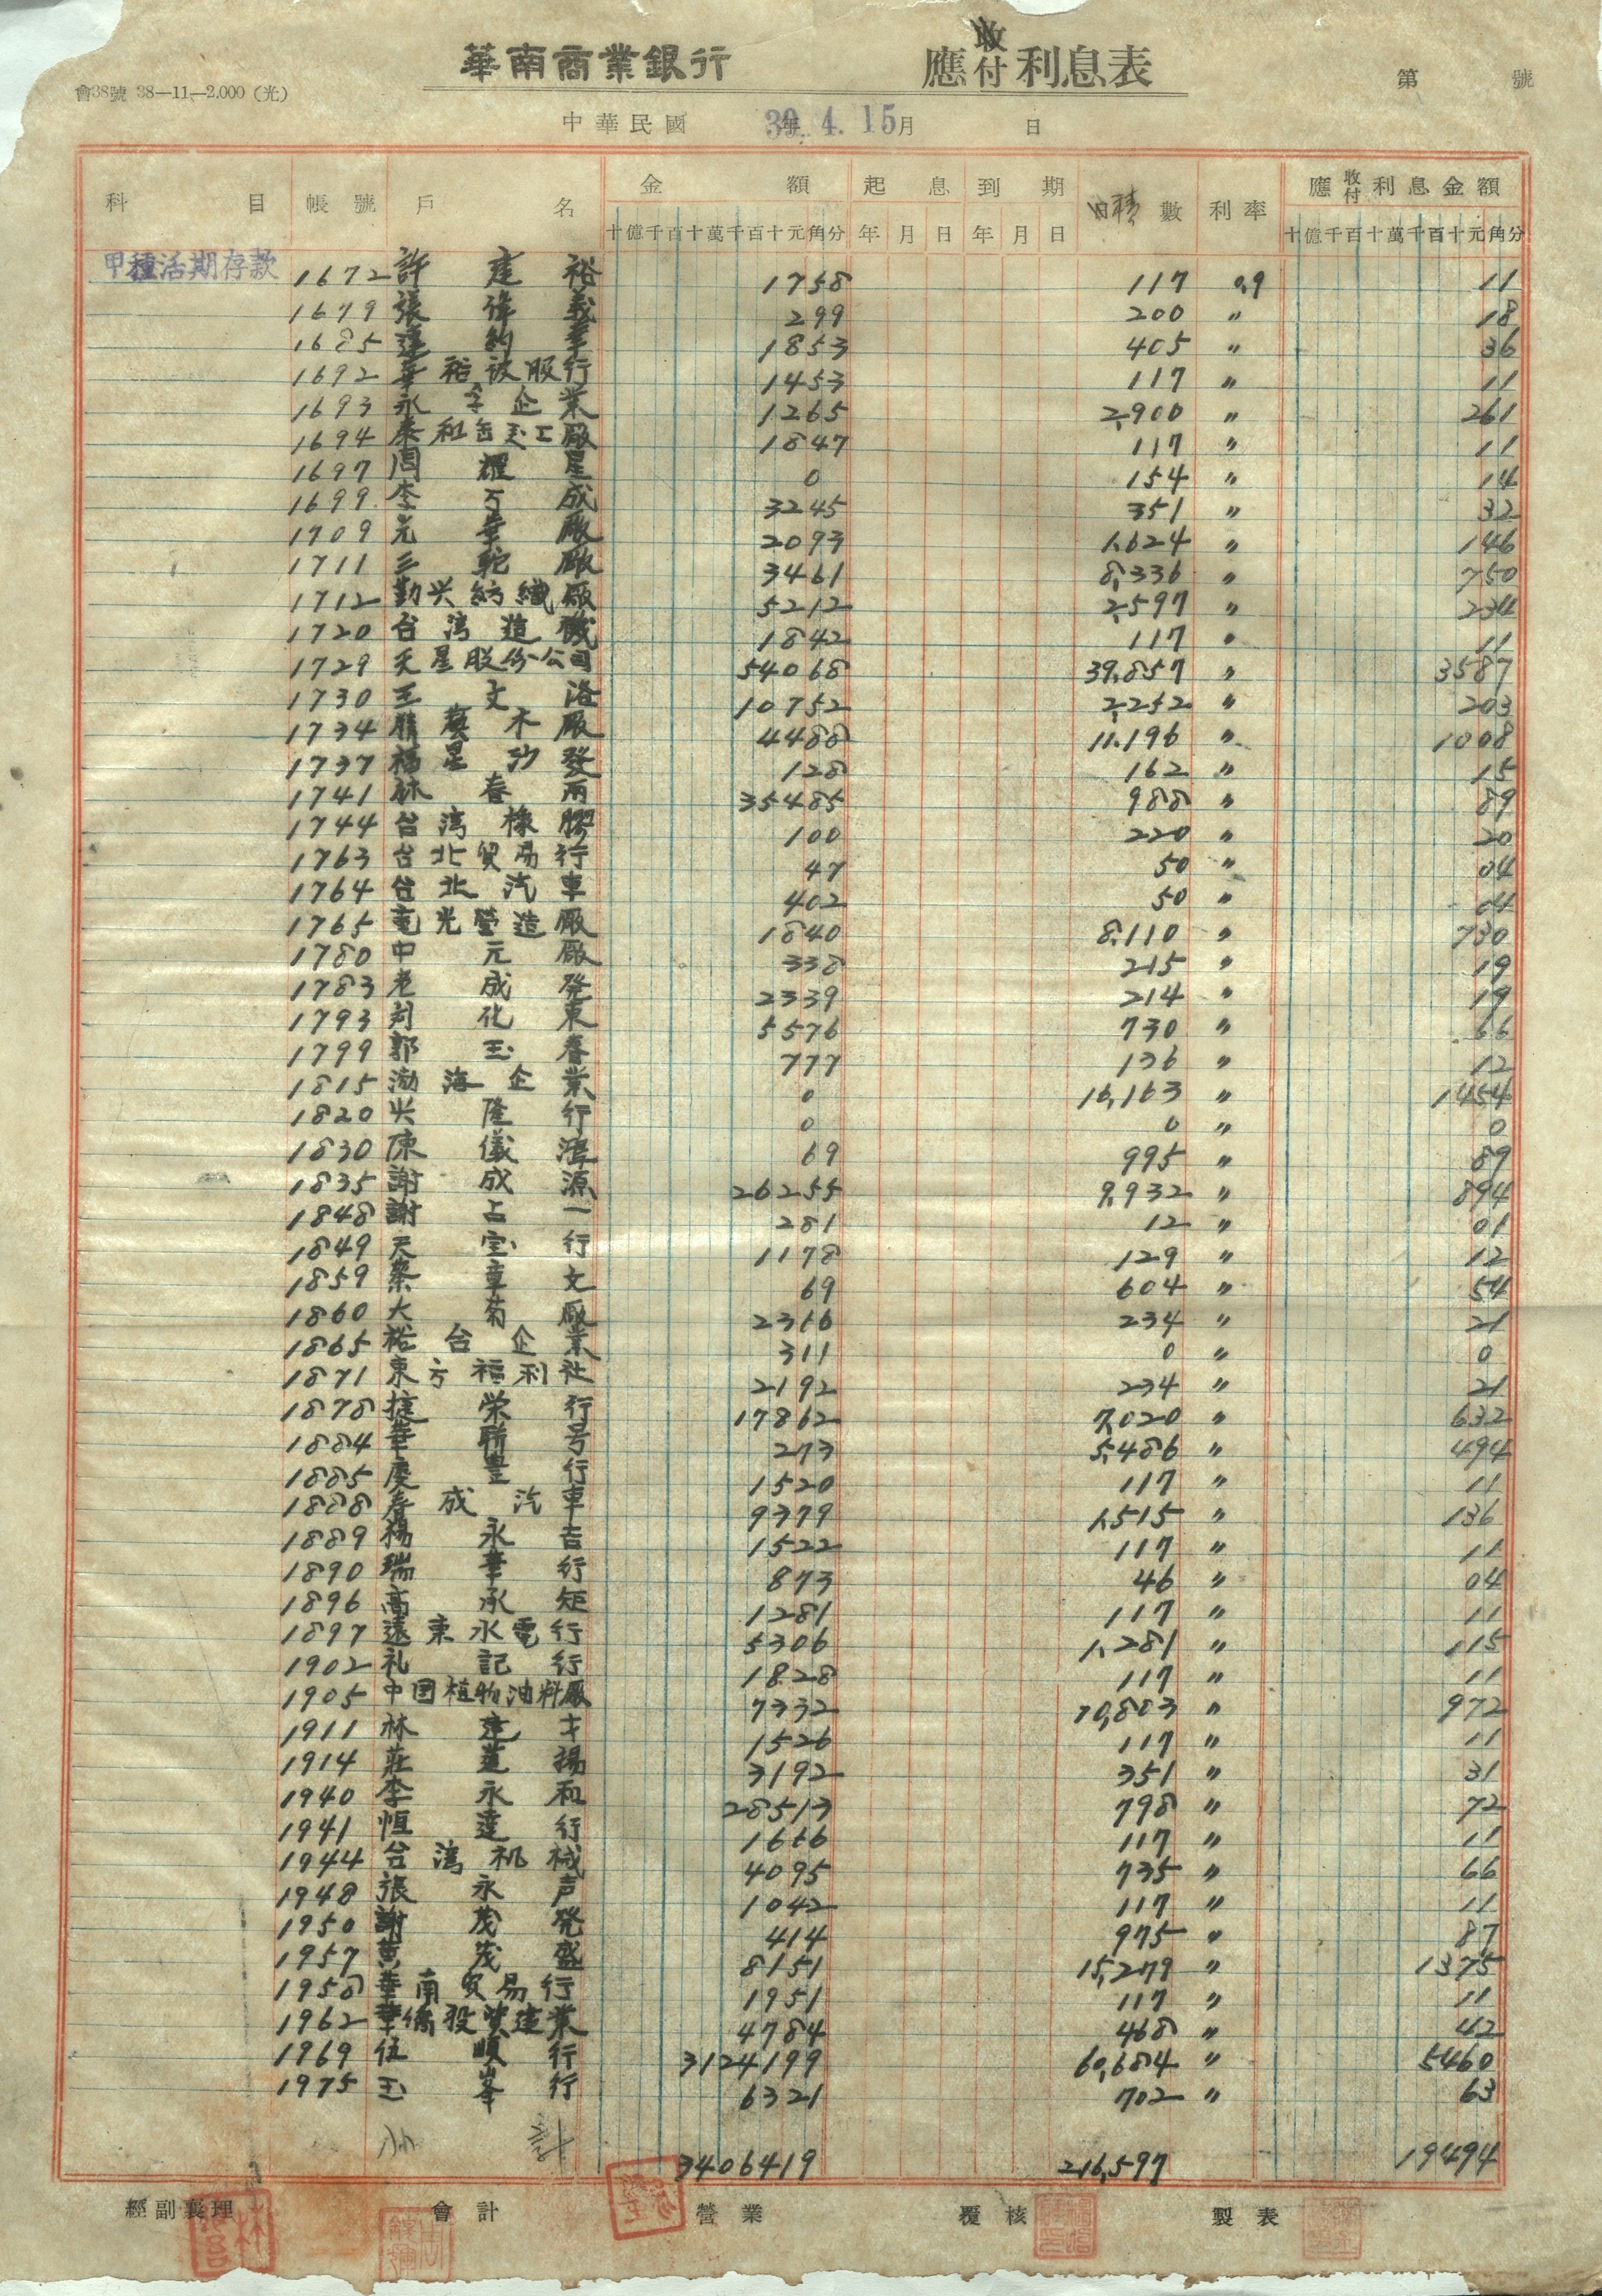 華南商業銀行 應收付利息表
會38號 38—11—2.000 (光) 第 號
中華民國 39. 4. 15 年 月 日
科目 帳號 戶名 金額 起息 到期 日積數 利率 應收付利息金額
十億千百十萬千百十元角分 年月日 年月日 十億千百十萬千百十元角分
甲種活期存款 1672 許建裕 1758 117 0.9 11
1679 張偉義 299 200 〃 18
1685 蓬約華 1853 405 〃 36
1692 華裕被服行 1453 117 〃 11
1693 永 企業 1265 2,900 〃 261
1694 泰和缶玉工廠 1847 117 〃 11
1697 周耀星 0 154 〃 14
1699 李万成 3245 351 〃 32
1709 光華廠 2093 1,624 〃 146
1711 三乾廠 3461 8,336 〃 750
1712 勤兴紡織廠 5212 2,597 〃 234
1720 台湾造機 1842 117 〃 11
1729 天星股份公司 54068 39,857 〃 3587
1730 王文洛 10752 2,252 〃 203
1734 勝藝木廠 4488 11,196 〃 1008
1737 福星沙發 128 162 〃 15
1741 林春雨 35485 988 〃 89
1744 台湾橡膠 100 220 〃 20
1763 台北贸易行 47 50 〃 04
1764 台北汽車 402 50 〃 04
1765 竟光營造廠 1840 8,110 〃 730
1780 中元廠 338 215 〃 19
1783 老成発 2339 214 〃 19
1793 刘化東 5576 730 〃 66
1799 郭玉春 777 136 〃 12
1815 渤海企業 0 16,163 〃 1454
1820 兴隆行 0 0 〃 0
1830 陳儀澤 69 995 〃 89
1835 謝成源 26255 9,932 〃 894
1848 謝占一 281 12 〃 01
1849 天宝行 1178 129 〃 12
1859 蔡章文 69 604 〃 54
1860 大菊廠 2366 234 〃 21
1865 裕台企業 311 0 〃 0
1871 東方福利社 2192 234 〃 21
1878 捷栄行 17862 7,020 〃 632
1884 華聯号 273 5,486 〃 494
1885 慶豊行 1520 117 〃 11
1888 春成汽車 9379 1,515 〃 136
1889 楊永吉 1522 117 〃 11
1890 瑞華行 873 46 〃 04
1896 高承矩 1281 117 〃 11
1897 遠東水電行 5306 1,281 〃 115
1902 礼記行 1828 117 〃 11
1905 中国植物油料廠 7332 10,803 〃 972
1911 林建才 1526 117 〃 11
1914 莊蓮揚 3192 351 〃 31
1940 李永和 28513 798 〃 72
1941 恒達行 1666 117 〃 11
1944 台湾机械 4095 735 〃 66
1948 張永声 1042 117 〃 11
1950 謝茂発 414 975 〃 87
1957 黄茂盛 8151 15,279 〃 1375
1958 華南贸易行 1951 117 〃 11
1962 華僑投資建業 4784 468 〃 42
1969 伍順行 3124199 60,684 〃 5460
1975 玉峯行 6321 702 〃 63
小計 3406419 216,597 19494
經副襄理 會計 營業 覆核 製表